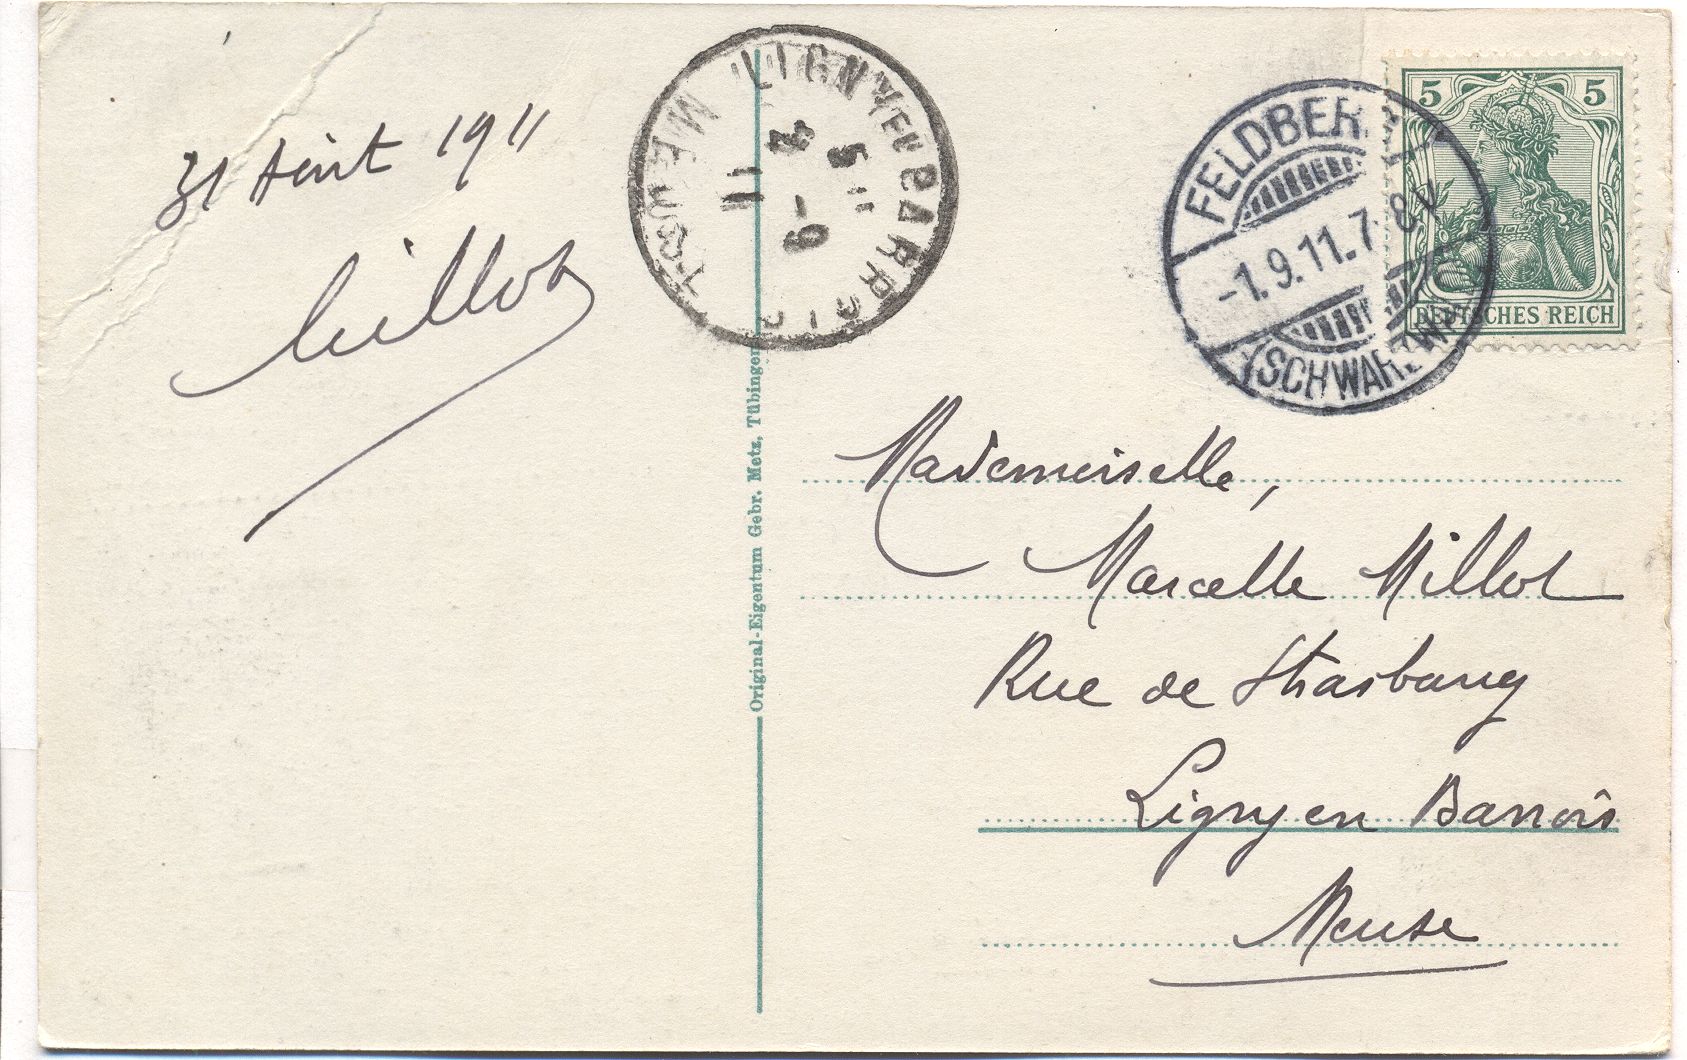 31 Août 1911
Millot
LIGNY-EN-BARROIS
MEUSE
5
2 - 9
11
FELDBER
-1.9.11.7-8V
(SCHWARZWA
5 5
DEUTSCHES REICH
Original-Eigentum Gebr. Metz, Tübingen
Mademoiselle,
Marcelle Millot
Rue de Strasbourg
Ligny en Barrois
Meuse